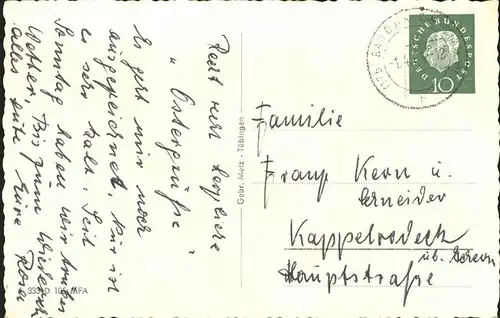 Recht sehr herzliche
"Ostergrüße"
Es geht mir noch
ausgezeichnet, nur ist
es sehr kalt. Seit
Sonntag haben wir
Wetter. Bis zum
alles Gute Eure Rosa
333 D 10 MFA
Gebr. Metz · Tübingen
DEUTSCHE BUNDESPOST
10
Familie
Franz Kern u.
Schneider
Kappelrodeck
üb. Achern
Hauptstraße